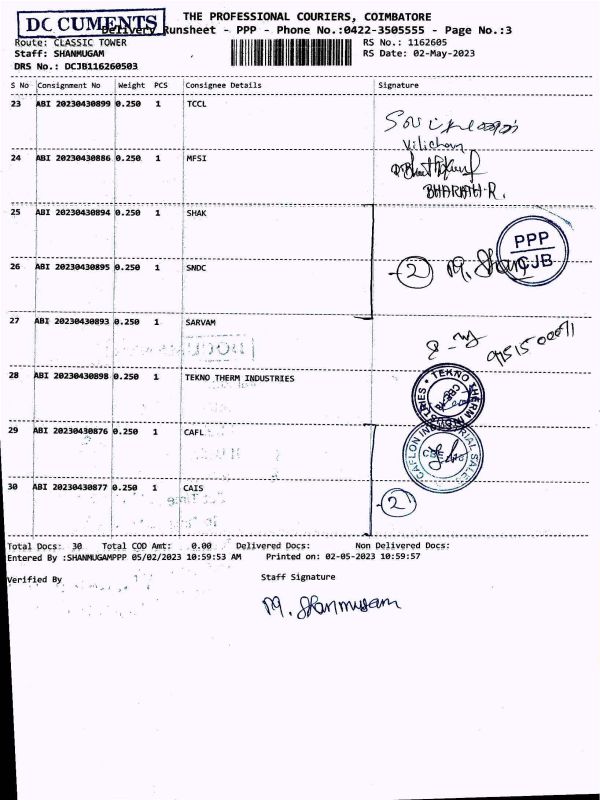 DOCUMENTS
THE PROFESSIONAL COURIERS, COIMBATORE
Delivery Runsheet - PPP - Phone No.:0422-3505555 - Page No.:3
Route: CLASSIC TOWER RS No.: 1162605
Staff: SHANMUGAM RS Date: 02-May-2023
DRS No.: DCJB116260503
S No Consignment No Weight PCS Consignee Details Signature
23 ABI 20230430899 0.250 1 TCCL
Vilichan
24 ABI 20230430886 0.250 1 MFSI
BHARATH.R.
25 ABI 20230430894 0.250 1 SHAK
PPP
CJB
26 ABI 20230430895 0.250 1 SNDC
2 M. Shan
27 ABI 20230430893 0.250 1 SARVAM
28 ABI 20230430898 0.250 1 TEKNO THERM INDUSTRIES
TEKNO THERM INDUSTRIES
29 ABI 20230430876 0.250 1 CAFL
CAFLON INDUSTRIAL SALES
30 ABI 20230430877 0.250 1 CAIS
2
Total Docs: 30 Total COD Amt: 0.00 Delivered Docs: Non Delivered Docs:
Entered By :SHANMUGAMPPP 05/02/2023 10:59:53 AM Printed on: 02-05-2023 10:59:57
Verified By Staff Signature
M. Shanmugam